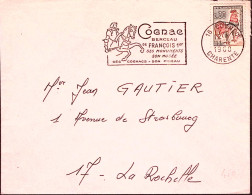 Cognac
BERCEAU
DE FRANÇOIS 1er
SES MONUMENTS
SON MUSÉE
SES COGNACS - SON PINEAU
16
CHARENTE
Mr Jean GAUTIER
1 Avenue de Strasbourg
17 - La Rochelle